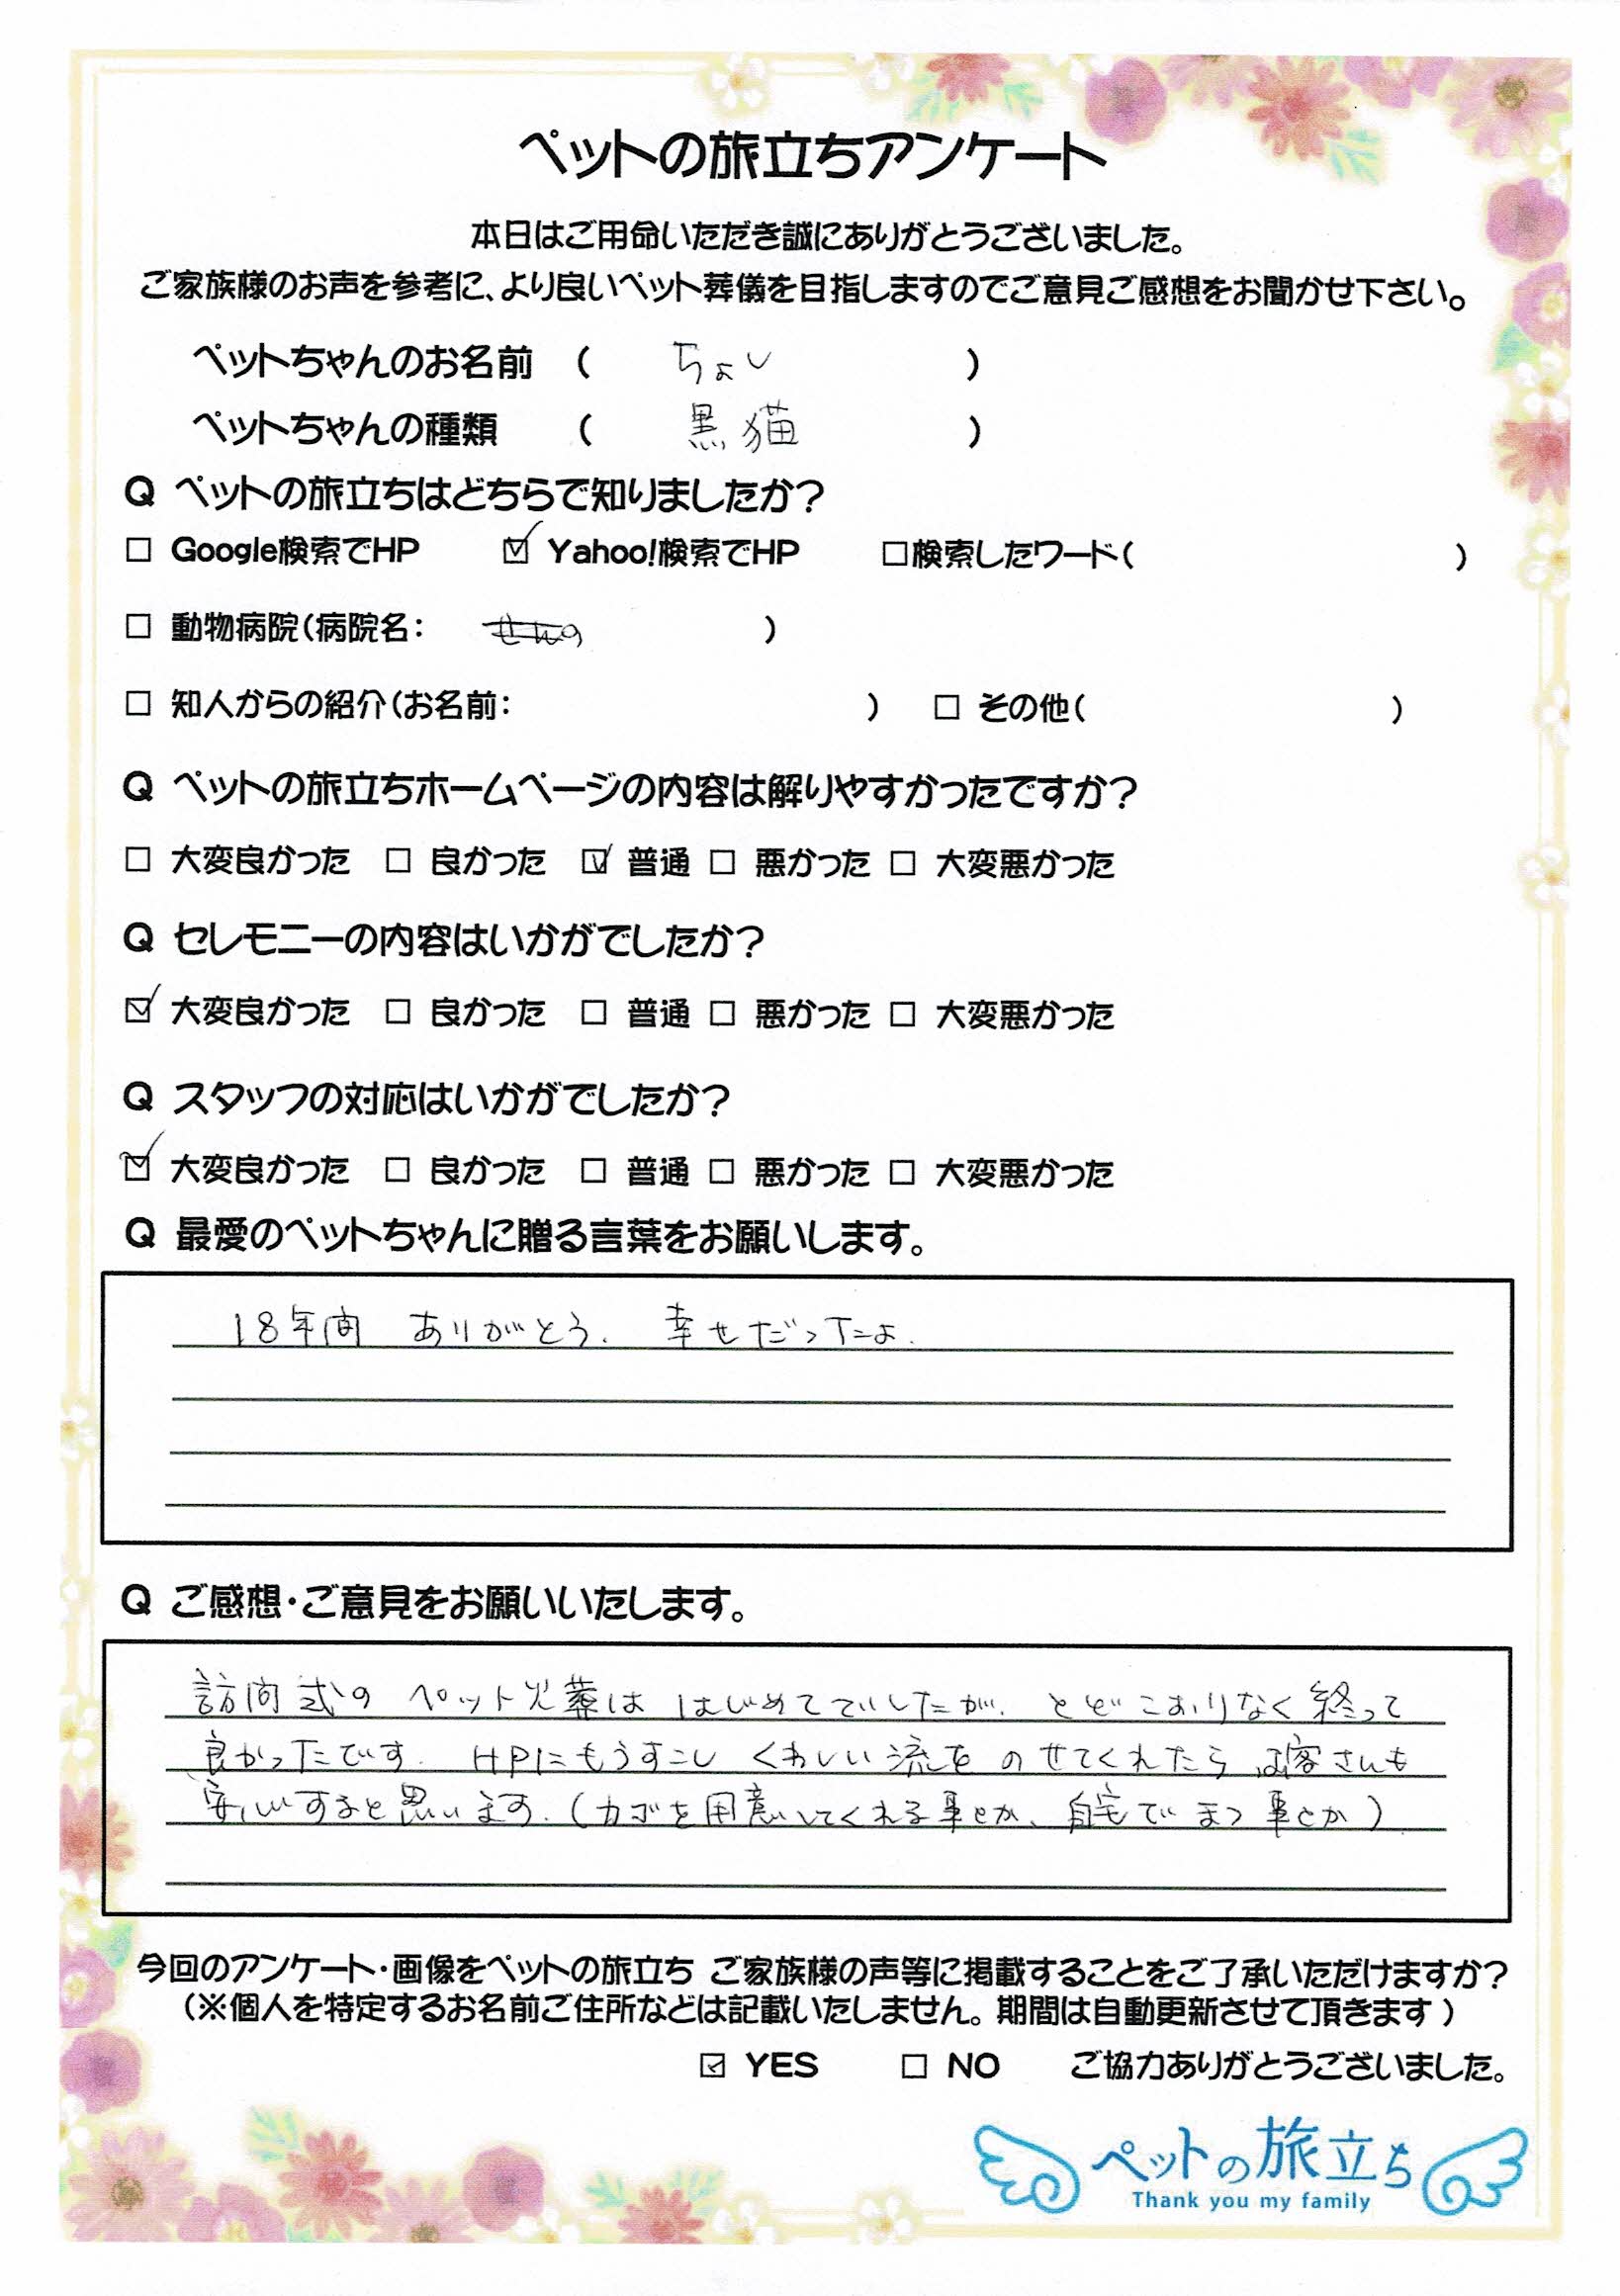 ペットの旅立ちアンケート
本日はご用命いただき誠にありがとうございました。
ご家族様のお声を参考に、より良いペット葬儀を目指しますのでご意見ご感想をお聞かせ下さい。
ペットちゃんのお名前 ( ちょい )
ペットちゃんの種類 ( 黒猫 )
Q ペットの旅立ちはどちらで知りましたか?
□ Google検索でHP ☑ Yahoo!検索でHP □検索したワード( )
□ 動物病院(病院名: )
□ 知人からの紹介(お名前: ) □ その他( )
Q ペットの旅立ちホームページの内容は解りやすかったですか?
□ 大変良かった □ 良かった ☑ 普通 □ 悪かった □ 大変悪かった
Q セレモニーの内容はいかがでしたか?
☑ 大変良かった □ 良かった □ 普通 □ 悪かった □ 大変悪かった
Q スタッフの対応はいかがでしたか?
☑ 大変良かった □ 良かった □ 普通 □ 悪かった □ 大変悪かった
Q 最愛のペットちゃんに贈る言葉をお願いします。
18年間 ありがとう. 幸せだったよ.
Q ご感想・ご意見をお願いいたします。
訪問式の ペット火葬は はじめてでしたが、とどこおりなく終って
良かったです. HPにもうすこし くわしい流を のせてくれたら お客さんも
安心すると思います.(カゴを用意してくれる事とか、自宅でまつ事とか)
今回のアンケート・画像をペットの旅立ち ご家族様の声等に掲載することをご了承いただけますか?
(※個人を特定するお名前ご住所などは記載いたしません。期間は自動更新させて頂きます)
☑ YES □ NO ご協力ありがとうございました。
ペットの旅立ち
Thank you my family